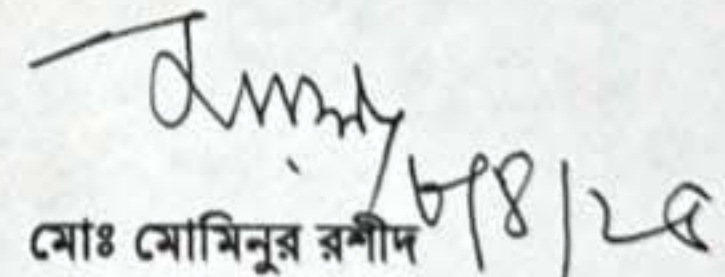 ৮/৪/২৫
মোঃ মোমিনুর রশীদ